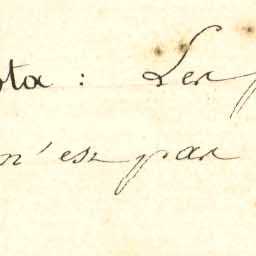 ota : Les
n'est pas